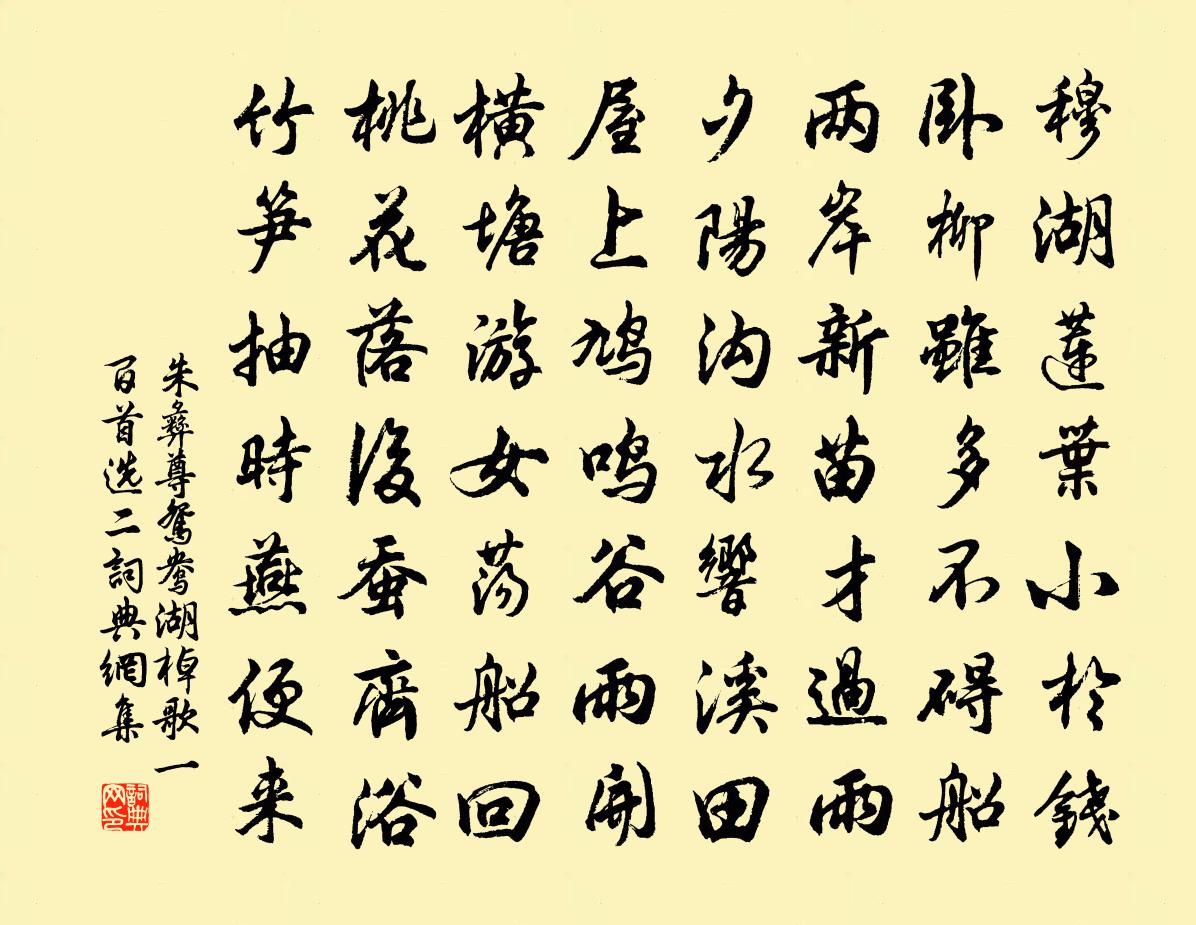 穆湖蓮葉小於錢
卧柳雖多不碍船
两岸新苗才過雨
夕陽沟水響溪田
屋上鳩鳴谷雨開
横塘游女荡船回
桃花落後蚕齊浴
竹笋抽時燕便来
朱彝尊鴛鴦湖棹歌一
百首选二詞典網集
詞典
网印